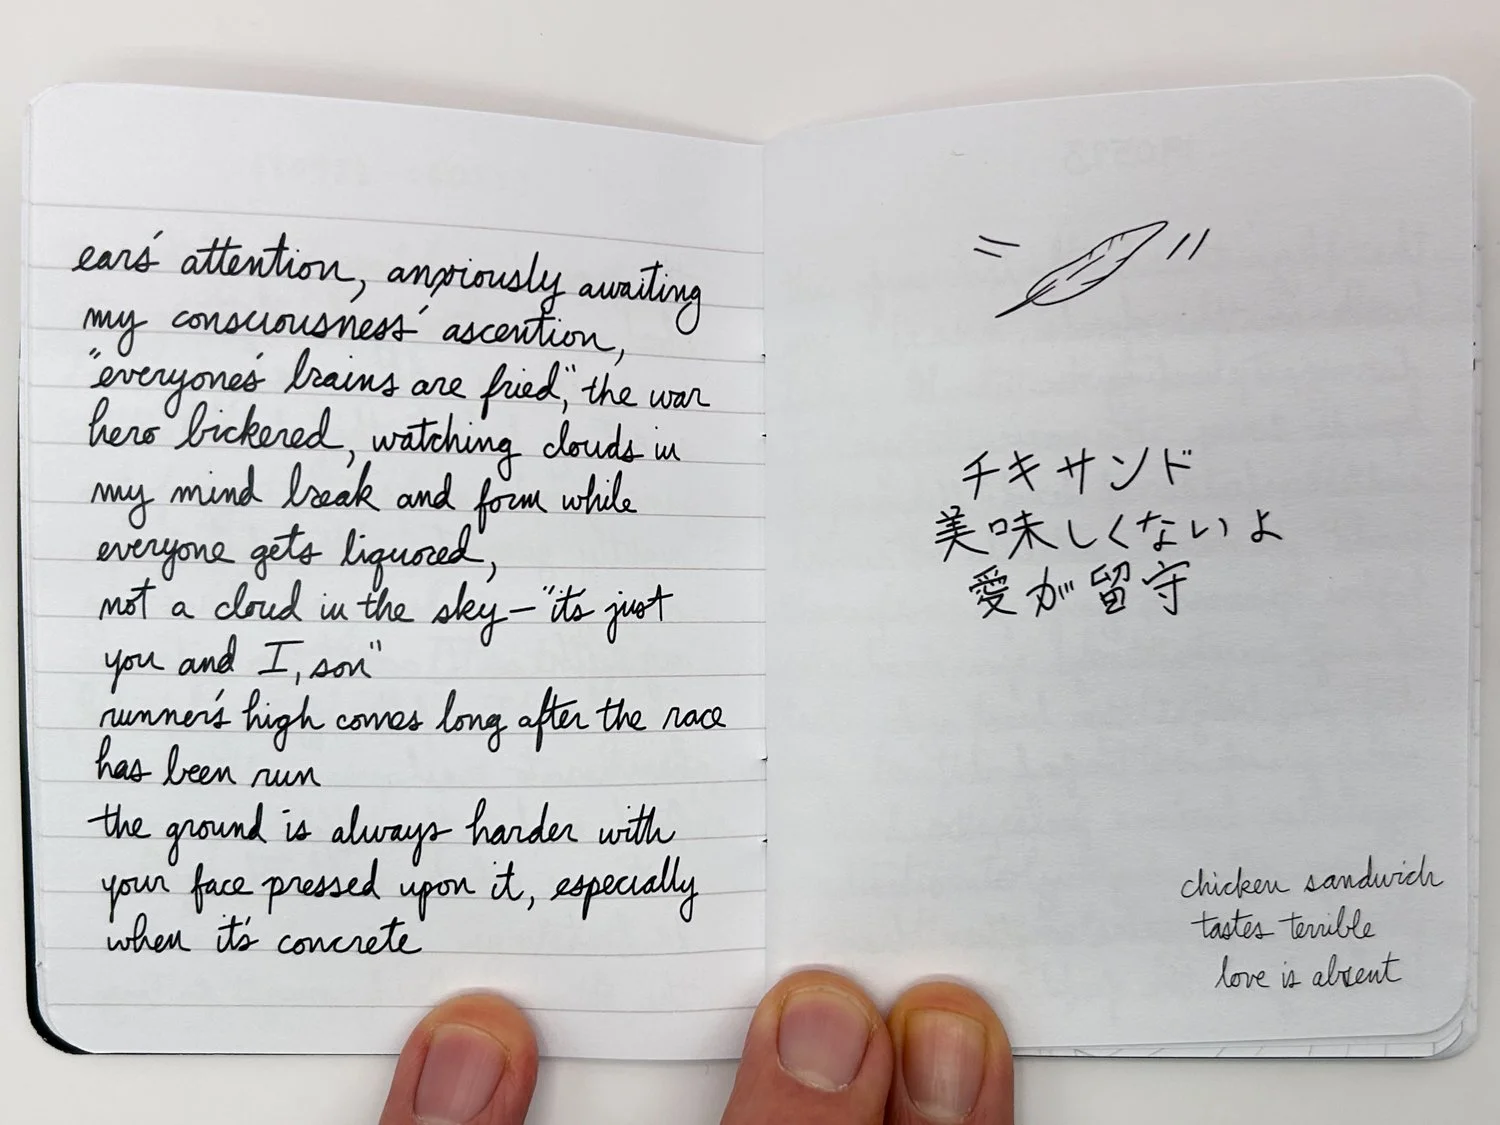 ears' attention, anxiously awaiting
my consciousness' ascention,
"everyone's brains are fried", the war
hero bickered, watching clouds in
my mind break and form while
everyone gets liquored,
not a cloud in the sky—"it's just
you and I, son"
runner's high comes long after the race
has been run
the ground is always harder with
your face pressed upon it, especially
when it's concrete
チキサンド
美味しくないよ
愛が留守
chicken sandwich
tastes terrible
love is absent